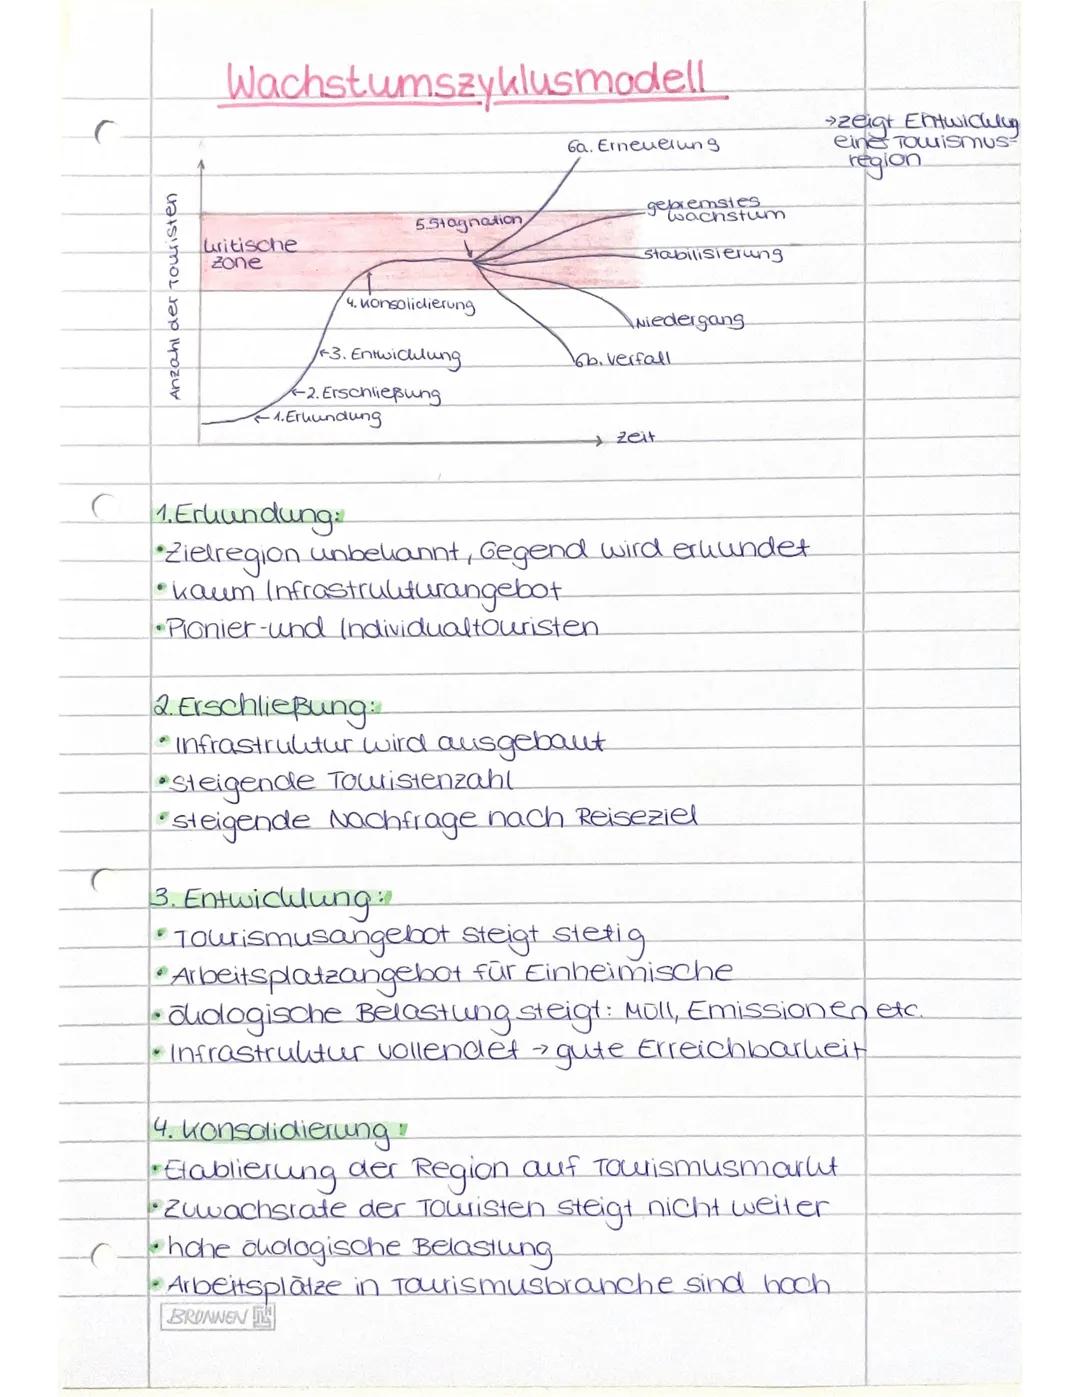 Wachstumszyklusmodell
→zeigt Entwicklung
eine Tourismus-
region
6a. Erneuerung
gebremstes
wachstum
5.Stagnation
kritische
zone
stabilisierung
4. Konsolidierung
Niedergang
←3. Entwicklung
6b. Verfall
←2. Erschließung
←1. Erkundung
Anzahl der Touristen
zeit
1. Erkundung:
•Zielregion unbekannt, Gegend wird erkundet
•kaum Infrastrukturangebot
•Pionier-und Individualtouristen
2. Erschließung:
•Infrastruktur wird ausgebaut
•steigende Touristenzahl
•steigende Nachfrage nach Reiseziel
3. Entwicklung:
•Tourismusangebot steigt stetig
•Arbeitsplatzangebot für Einheimische
•ökologische Belastung steigt: Müll, Emissionen etc.
•Infrastruktur vollendet → gute Erreichbarkeit
4. Konsolidierung:
•Etablierung der Region auf Tourismusmarkt
•Zuwachsrate der Touristen steigt nicht weiter
•hohe ökologische Belastung
•Arbeitsplätze in Tourismusbranche sind hoch
BRUNNEN